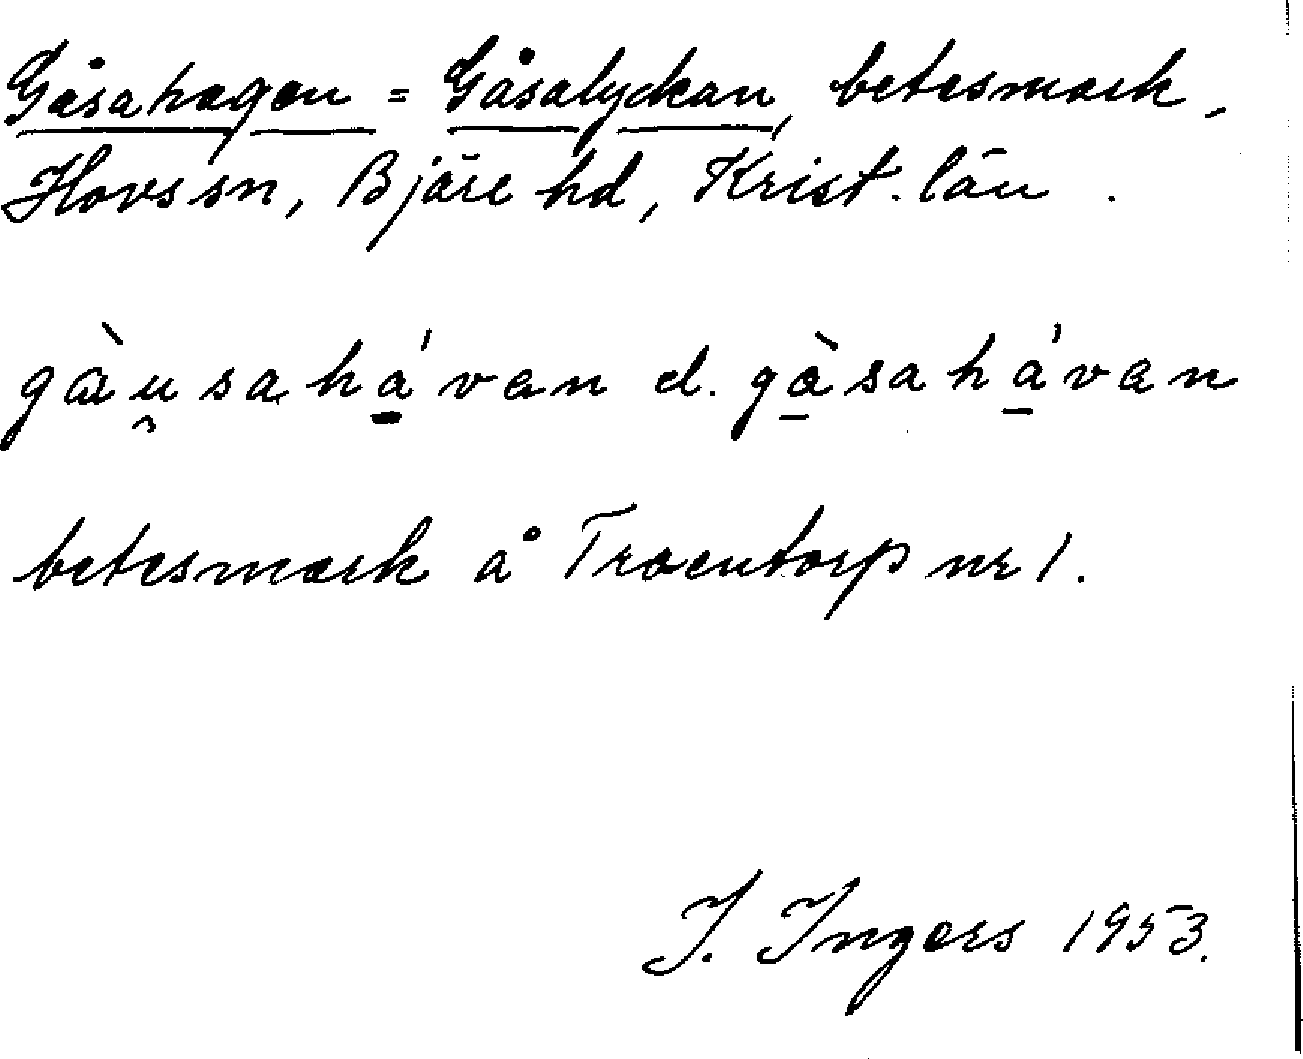 Gåsahagen = Gåsalyckan, betesmark,
Hovs sn, Bjäre hd, Krist. län.
gàu̯sahá̱van el. gà̱sahá̱van
betesmark å Troentorp nr 1.
I. Ingers 1953.